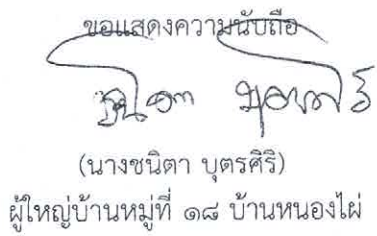 ขอแสดงความนับถือ
(นางชนิตา บุตรศิริ)
ผู้ใหญ่บ้านหมู่ที่ ๑๘ บ้านหนองไผ่